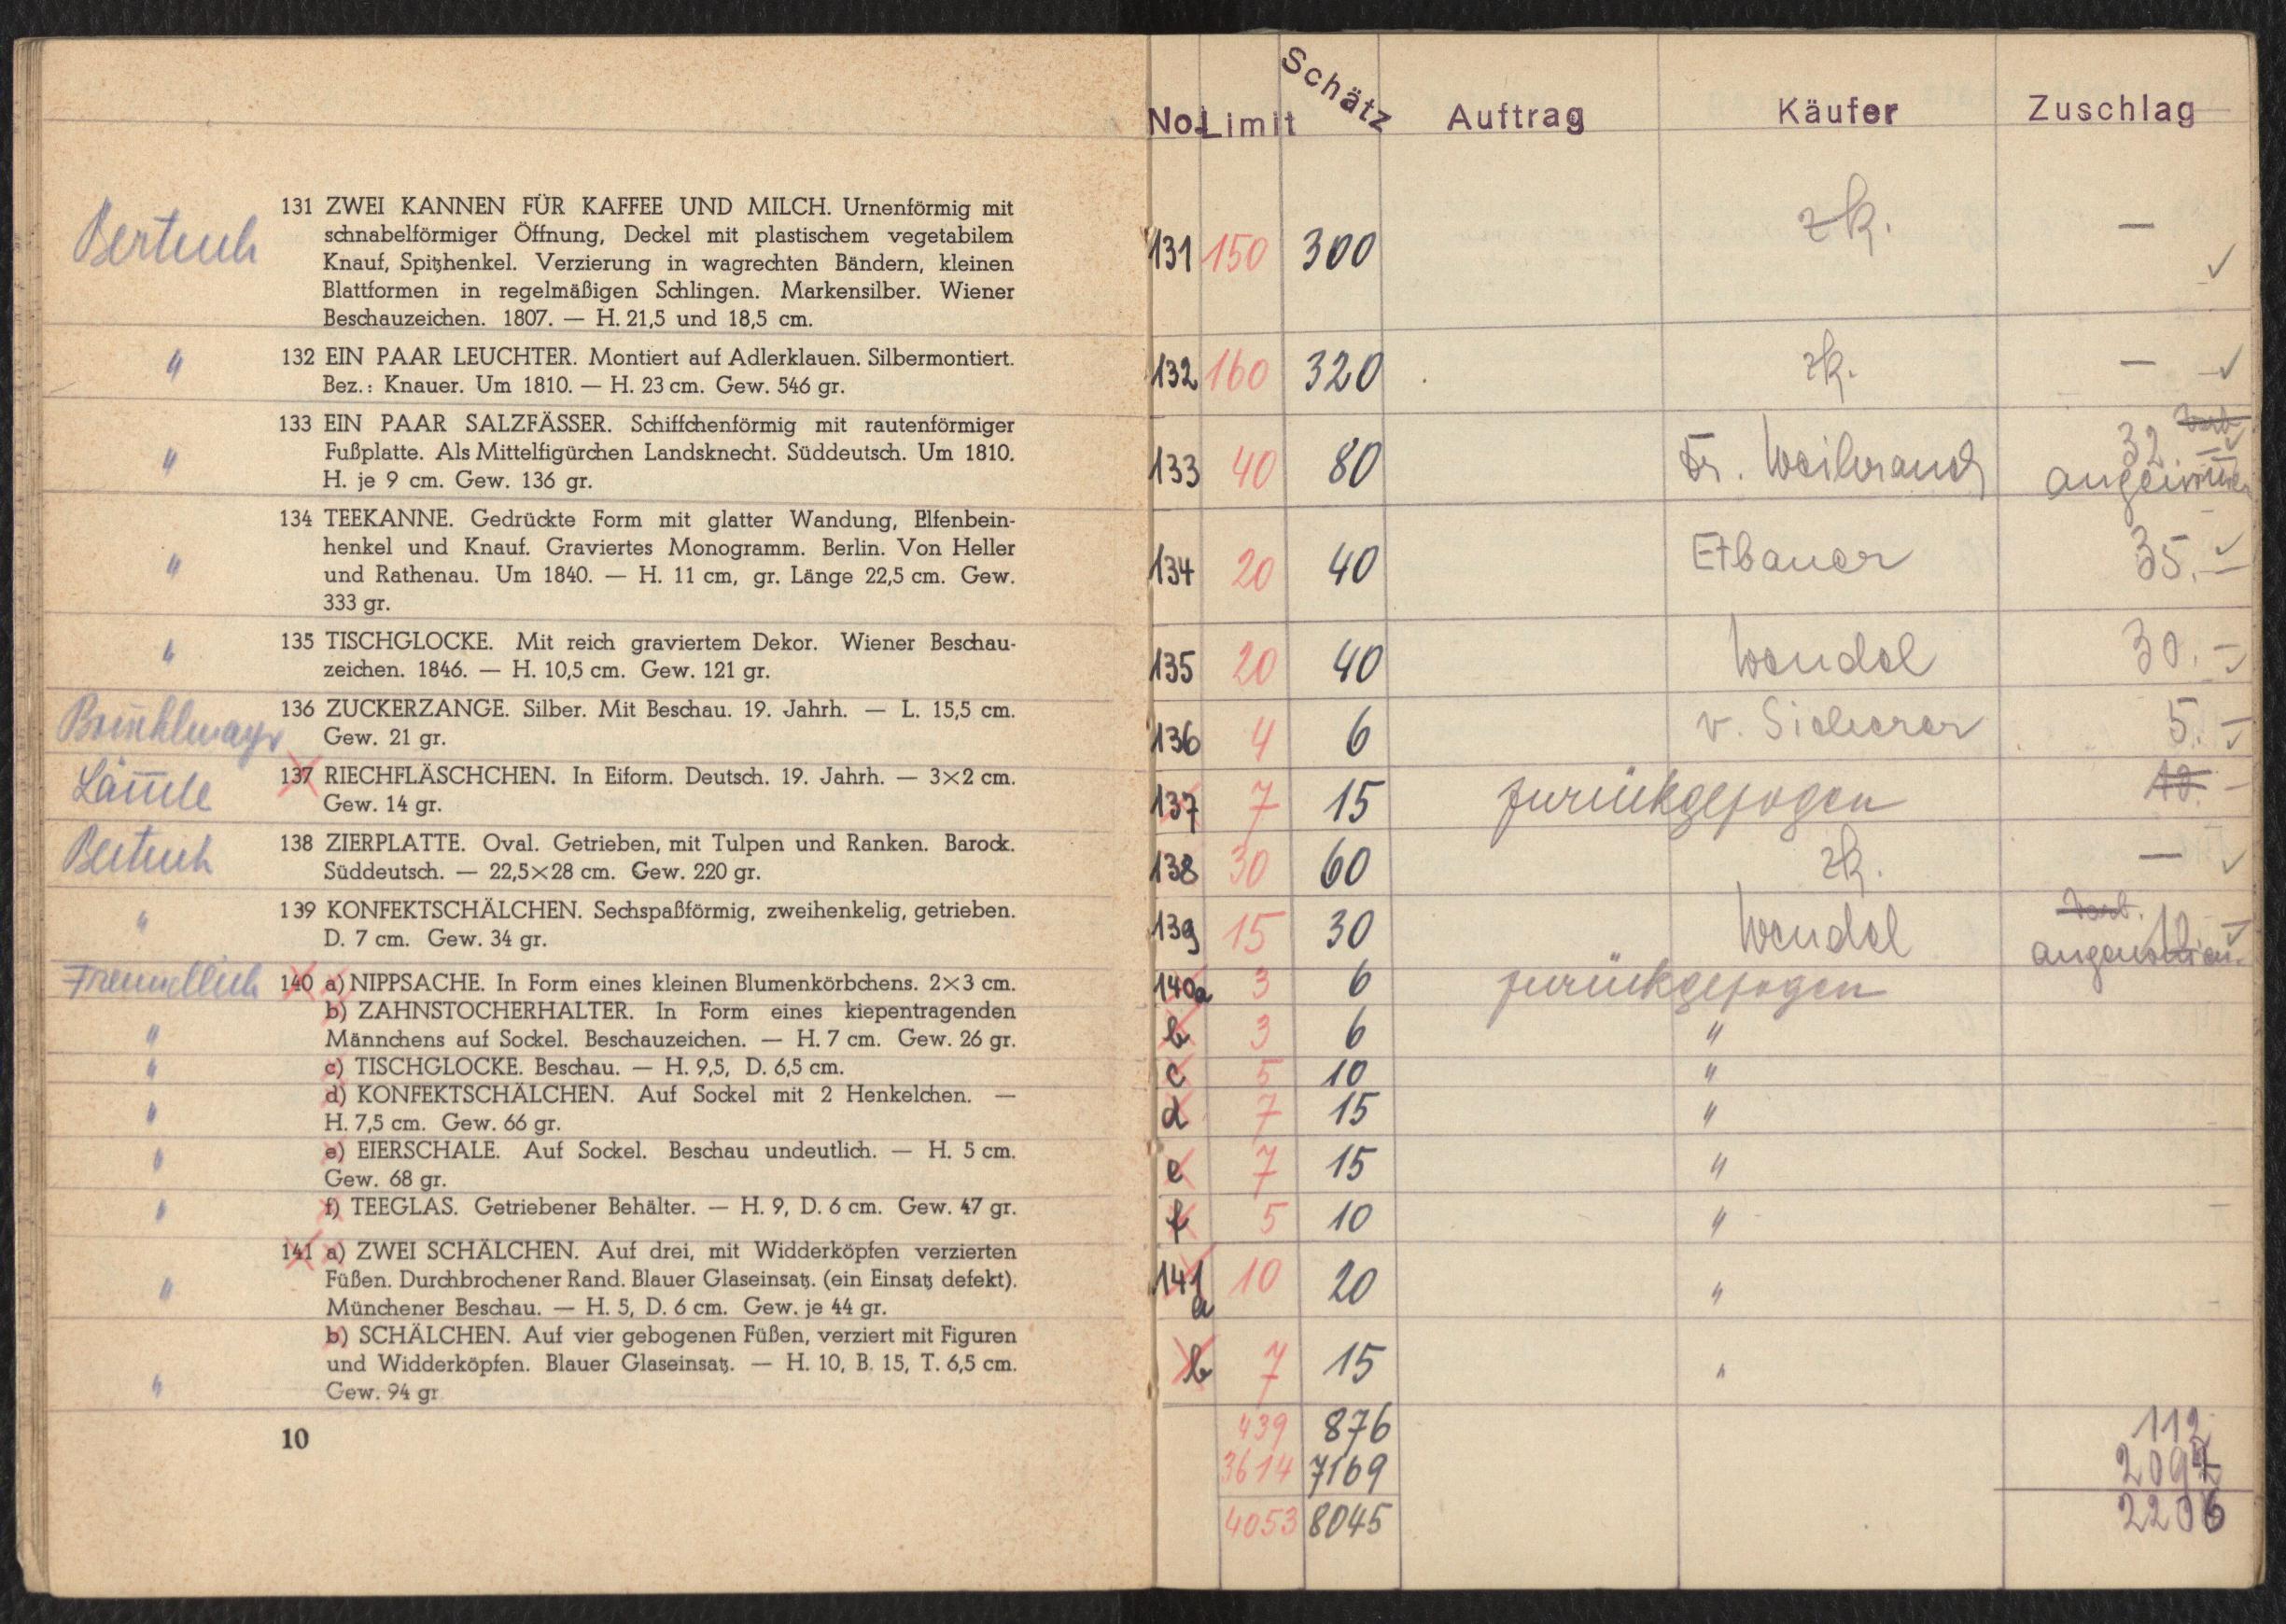 131 ZWEI KANNEN FÜR KAFFEE UND MILCH. Urnenförmig mit
schnabelförmiger Öffnung, Deckel mit plastischem vegetabilem
Knauf, Spitzhenkel. Verzierung in wagrechten Bändern, kleinen
Blattformen in regelmäßigen Schlingen. Markensilber. Wiener
Beschauzeichen. 1807. — H. 21,5 und 18,5 cm.
" 132 EIN PAAR LEUCHTER. Montiert auf Adlerklauen. Silbermontiert.
Bez.: Knauer. Um 1810. — H. 23 cm. Gew. 546 gr.
133 EIN PAAR SALZFÄSSER. Schiffchenförmig mit rautenförmiger
" Fußplatte. Als Mittelfigürchen Landsknecht. Süddeutsch. Um 1810.
H. je 9 cm. Gew. 136 gr.
134 TEEKANNE. Gedrückte Form mit glatter Wandung, Elfenbein-
henkel und Knauf. Graviertes Monogramm. Berlin. Von Heller
" und Rathenau. Um 1840. — H. 11 cm, gr. Länge 22,5 cm. Gew.
333 gr.
" 135 TISCHGLOCKE. Mit reich graviertem Dekor. Wiener Beschau-
zeichen. 1846. — H. 10,5 cm. Gew. 121 gr.
136 ZUCKERZANGE. Silber. Mit Beschau. 19. Jahrh. — L. 15,5 cm.
Gew. 21 gr.
137 RIECHFLÄSCHCHEN. In Eiform. Deutsch. 19. Jahrh. — 3×2 cm.
Gew. 14 gr.
138 ZIERPLATTE. Oval. Getrieben, mit Tulpen und Ranken. Barock.
Süddeutsch. — 22,5×28 cm. Gew. 220 gr.
" 139 KONFEKTSCHÄLCHEN. Sechspaßförmig, zweihenkelig, getrieben.
D. 7 cm. Gew. 34 gr.
Freundlich 140 a) NIPPSACHE. In Form eines kleinen Blumenkörbchens. 2×3 cm.
" b) ZAHNSTOCHERHALTER. In Form eines kiepentragenden
Männchens auf Sockel. Beschauzeichen. — H. 7 cm. Gew. 26 gr.
" c) TISCHGLOCKE. Beschau. — H. 9,5, D. 6,5 cm.
" d) KONFEKTSCHÄLCHEN. Auf Sockel mit 2 Henkelchen. —
H. 7,5 cm. Gew. 66 gr.
" e) EIERSCHALE. Auf Sockel. Beschau undeutlich. — H. 5 cm.
Gew. 68 gr.
" f) TEEGLAS. Getriebener Behälter. — H. 9, D. 6 cm. Gew. 47 gr.
141 a) ZWEI SCHÄLCHEN. Auf drei, mit Widderköpfen verzierten
" Füßen. Durchbrochener Rand. Blauer Glaseinsatz. (ein Einsatz defekt).
Münchener Beschau. — H. 5, D. 6 cm. Gew. je 44 gr.
b) SCHÄLCHEN. Auf vier gebogenen Füßen, verziert mit Figuren
und Widderköpfen. Blauer Glaseinsatz. — H. 10, B. 15, T. 6,5 cm.
" Gew. 94 gr
10
No. Limit Schätz Auftrag Käufer Zuschlag
131 150 300 zk. — ✓
132 160 320 zk. — ✓
133 40 80 Fr. Weilbrand 32.
134 20 40 Etbauer 35.— ✓
135 20 40 Wendel 30.— ✓
136 4 6 v. Sicherer 5.— ✓
137 7 15 zurückgezogen 10.—
138 30 60 zk. — ✓
139 15 30 Wendel
140a 3 6 zurückgezogen
b 3 6 "
c 5 10 "
d 7 15 "
e 7 15 "
f 5 10 "
141a 10 20 "
b 7 15 "
439 876 112
3614 7169
4053 8045 2206